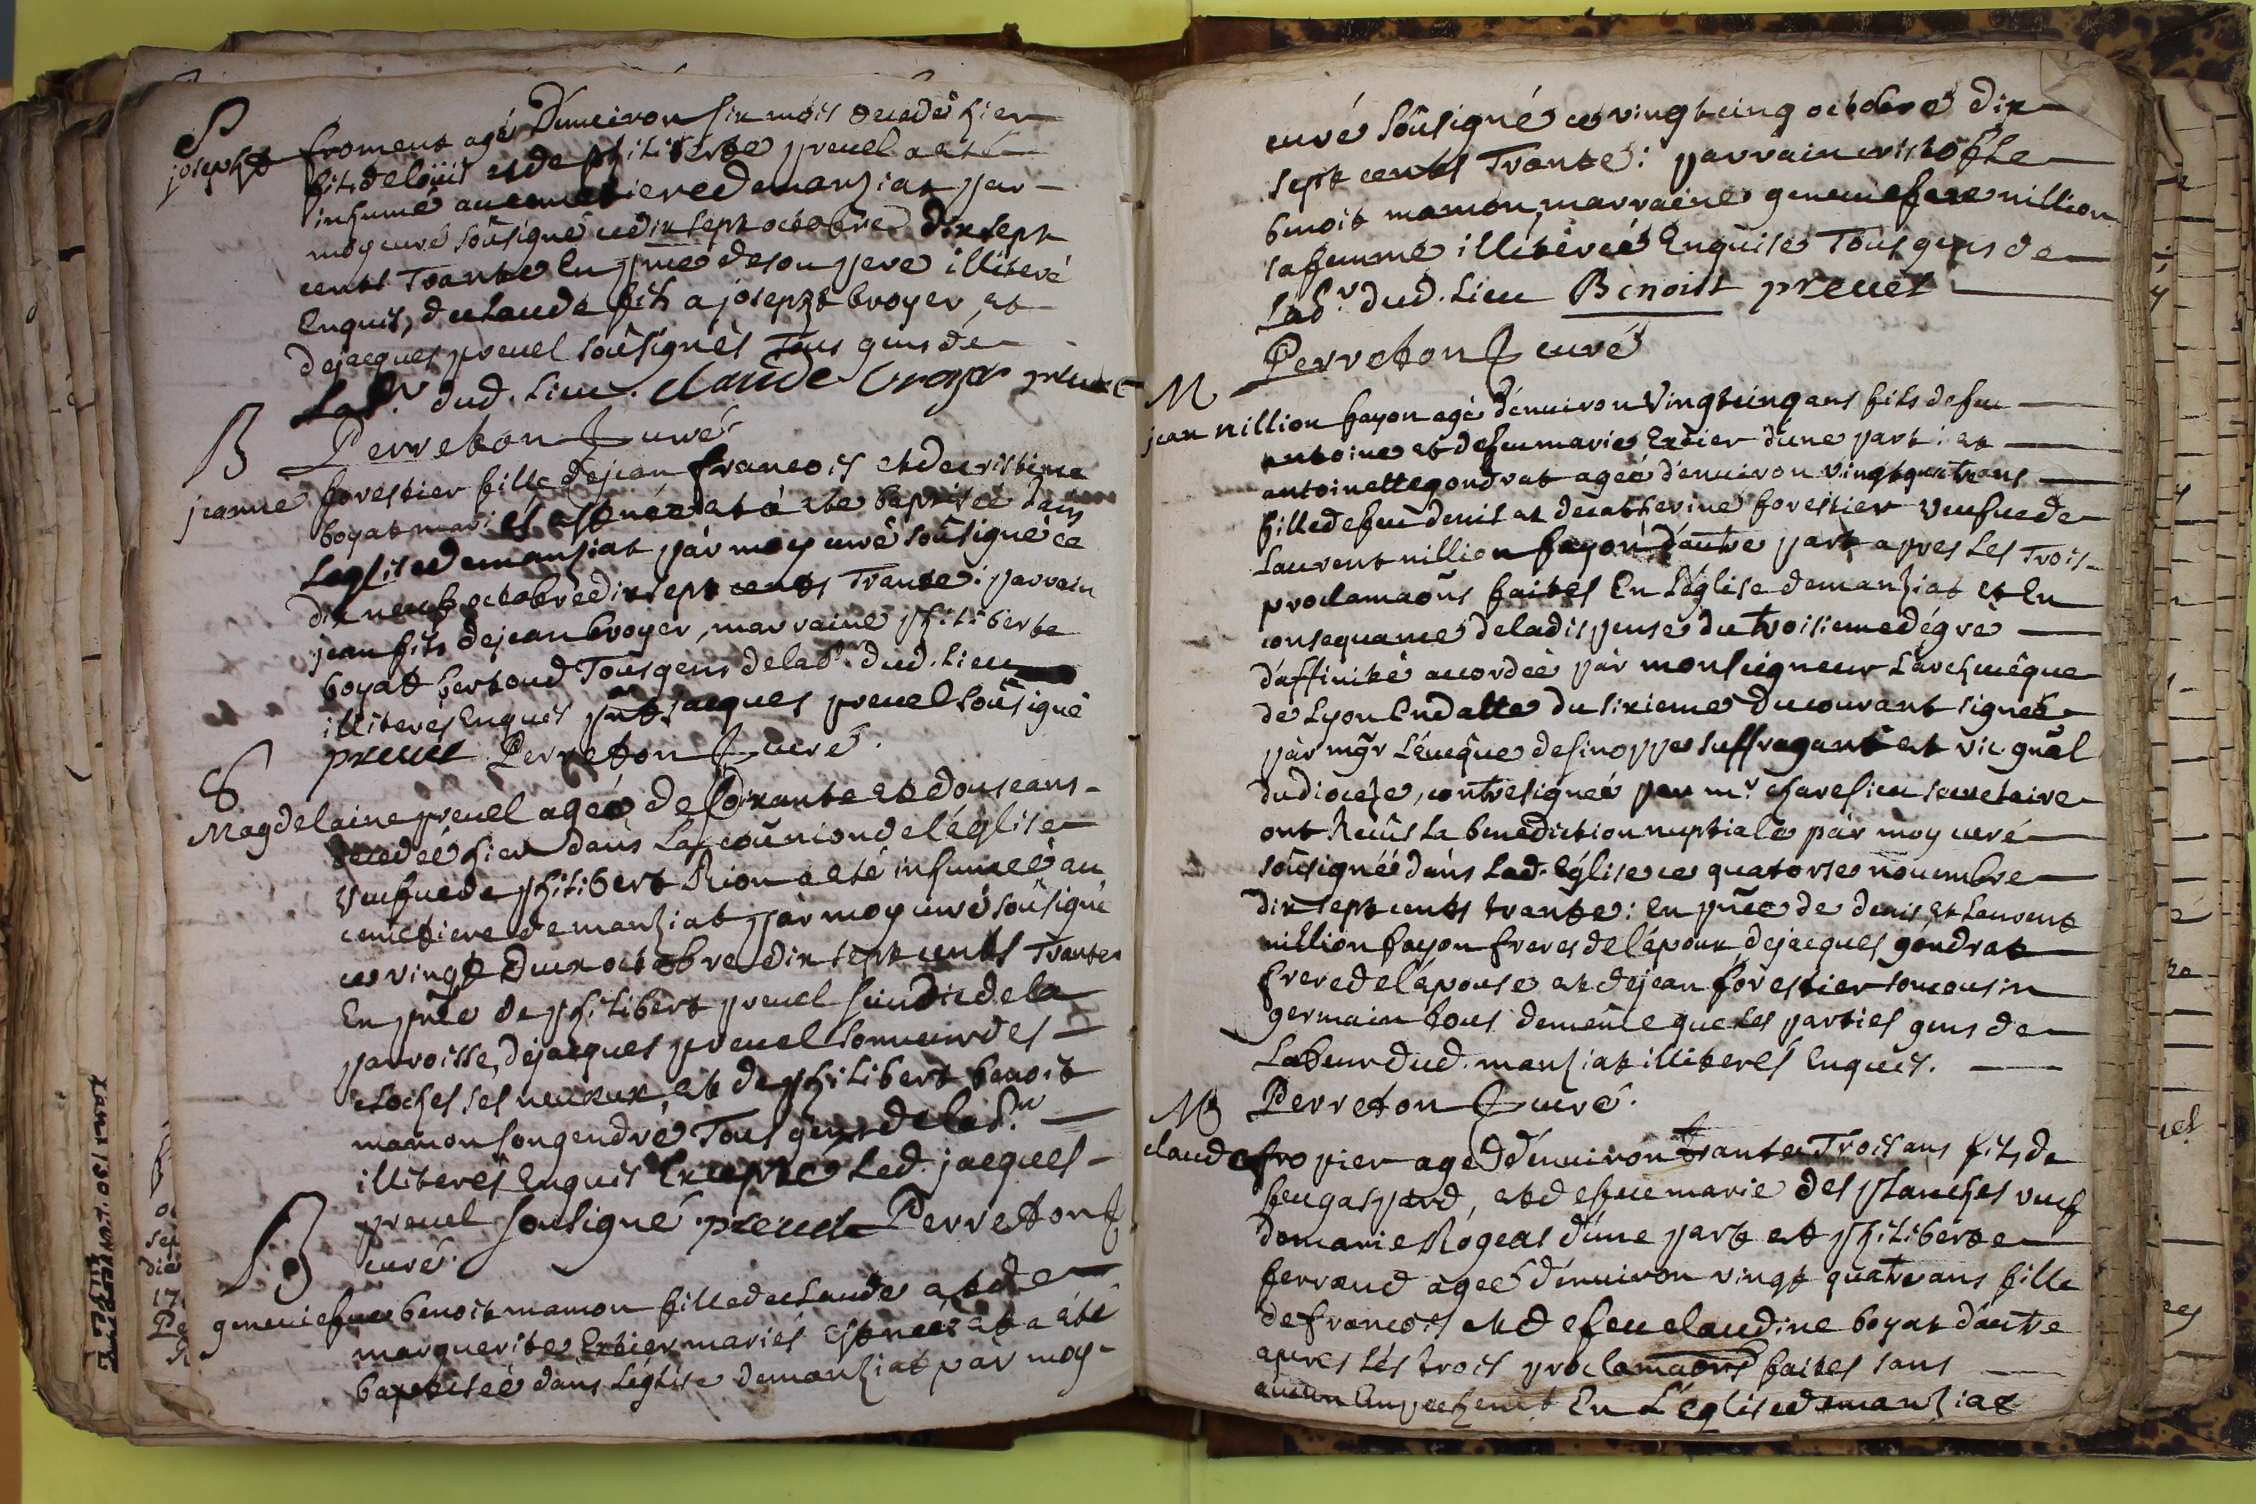 S
josepht froment agé d'enuiron six mois decedé hier
fils de loüis et de philiberte preuel a eté
inhumé au cemetiere de manziat par
moy curé soûsigné ce dix sept octobre dix sept
cents Trante En pñce de son pere illiteré
Enquis, de claude fils a josepht broyer, et
de jacques preuel soûsignés Tous gens de
Lab.r dud. Lieu. claude broyer preuel
Perreton curé
B
jeanne forestier fille de jean francois et de cristine
boyat mariés est née et a eté baptisée dans
Leglise de manziat par moy curé soûsigné ce
dix neuf octobre dix sept cents Trante: parrain
jean fils de jean broyer, marraine philiberte
boyat bertoud Tous gens de lab.r dud. Lieu
illiterés Enquis pñt jacques preuel soûsigné
preuel Perreton curé.
S
Magdelaine preuel ageé de soixante et douse ans
decedeé hier dans La com̃union de l'église
Veufue de philibert Rion a eté inhumeé au
cemetiere de manziat par moy curé soûsigné
ce vingt Deux octobre dix sept cents Trante
En pñce de philibert preuel scindic de la
parroisse, de jacques preuel sonneur des
cloches ses neueux, et de philibert benoit
mamon son gendre Tous gens de lab.r
illiterés Enquis Excepté Led. jacques
preuel soûsigné preuel Perreton
curé.
B
geneuiefue benoit mamon fille de claude et de
marguerite Extier mariés est neé et a eté
baptiseé dans L'église de manziat par moy
curé soûsigné ce vingt cinq octobre dix
sept cents Trante: parrain cristofle
benoit mamon, marraine geneuiefue nillion
sa femme illitereé Enquise Tous gens de
Lab.r dud. Lieu Benoist preuel
Perreton curé
M
jean nillion fayon agé d'enuiron Vingt cinq ans fils de feu
antoine et de feu marie Extier d'une part: et
antoinette gondrat ageé d'enuiron vingt quatre ans
fille de feu denis et de catherine forestier veufue de
Laurent nillion fayon d'autre part apres Les Trois
proclamaõns faites En L'église de manziat et En
consequance de la dispense du troisieme dégré
d'affinité accordeé par monseigneur L'archeuêque
de Lyon En datte du sixieme du courant signeé
par mgr L'euêque de sinoppe suffragant et vic gñal
du dioceze, contresigneé par m.r charesieu secretaire
ont Reçûs La benediction nuptiale par moy curé
soûsigné dans Lad. église ce quatorse nouembre
dix sept cents trante: En pñce de denis, et Laurent
nillion fayon freres de l'époux, de jacques gondrat
frere de l'épouse et de jean forestier son cousin
germain tous de même que Les parties gens de
Labeur dud. manziat illiterés Enquis.
Perreton curé.
M
claude fropier agé d'enuiron trante Trois ans fils de
feu gaspard, et de feu marie des planches veuf
de marie Rogeas d'une part et philiberte
ferraud ageé d'enuiron vingt quatre ans fille
de francois et de feu claudine boyat d'autre
apres Les trois proclamaõns faites sans
aucun Empechemt En L'église de manziat